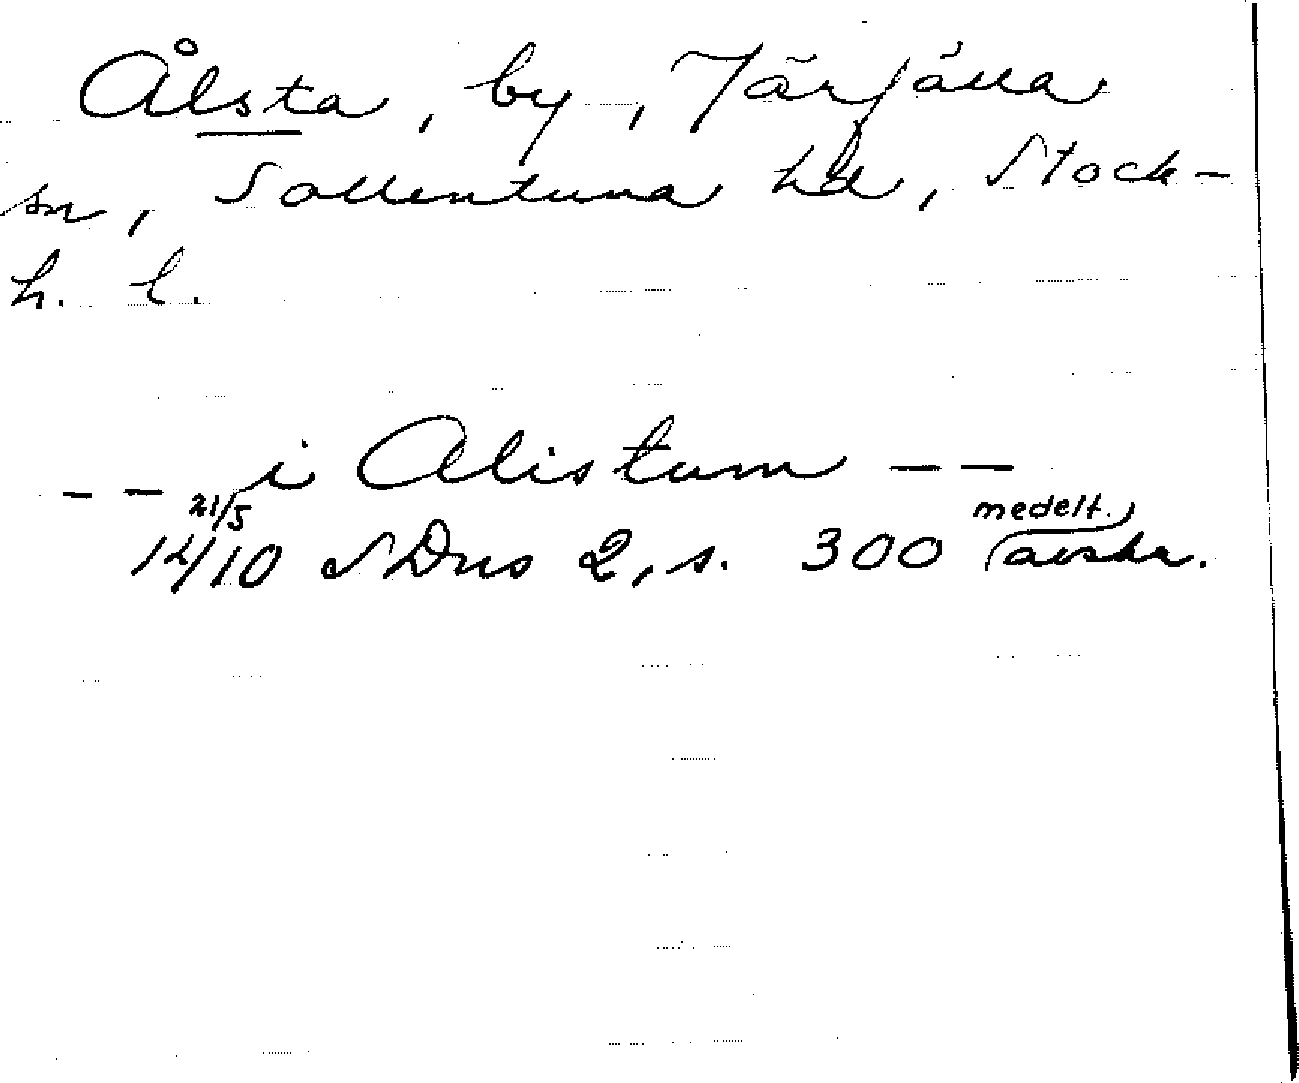 Ålsta, by, Järfälla
sn, Sollentuna hd, Stock-
h. l.
-- i Alistum --
21/5 1410 SDns 2, s. 300 (medelt.
avskr.